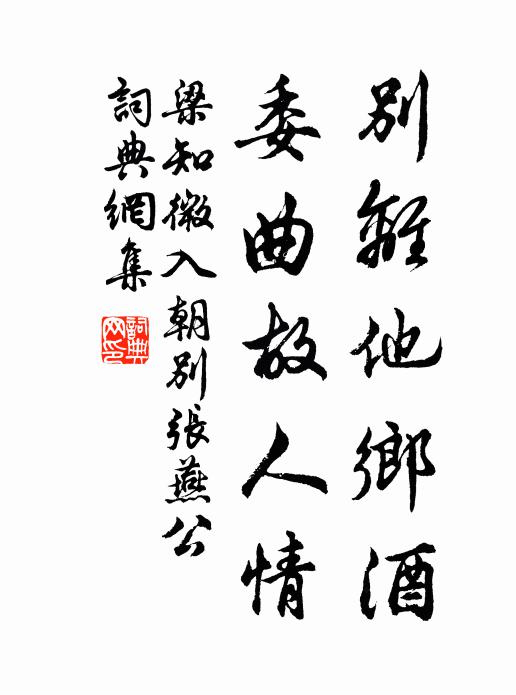 別離他鄉酒
委曲故人情
梁知微入朝別張燕公
詞典網集
詞典网印